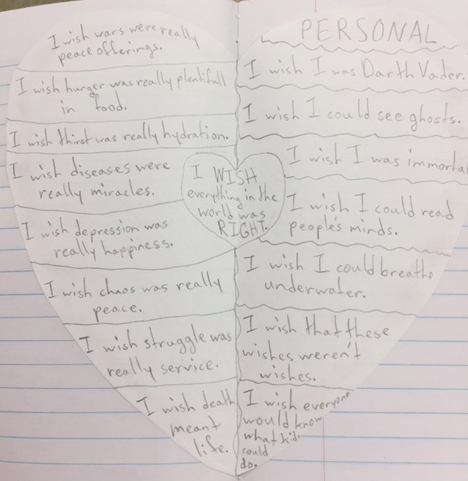 I wish wars were really
peace offerings.
I wish hunger was really plentifull
in food.
I wish thirst was really hydration.
I wish diseases were
really miracles.
I wish depression was
really happiness.
I wish chaos was really
peace.
I wish struggle was
really service.
I wish death
meant
life.
I WISH
everything in the
world was
RIGHT.
PERSONAL
I wish I was Darth Vader.
I wish I could see ghosts.
I wish I was immortal
I wish I could read
people's minds.
I wish I could breathe
underwater.
I wish that these
wishes weren't
wishes.
I wish everyone
would know
what kids
could
do.